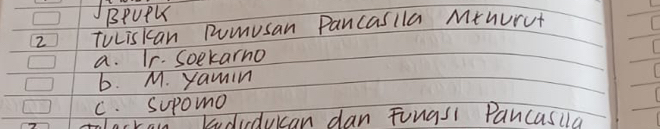 BPUPK
2 Tuliskan Rumusan Pancasila Menurut
a. Ir. Soekarno
b. M. Yamin
c. Supomo
kedudukan dan Fungsi Pancasila